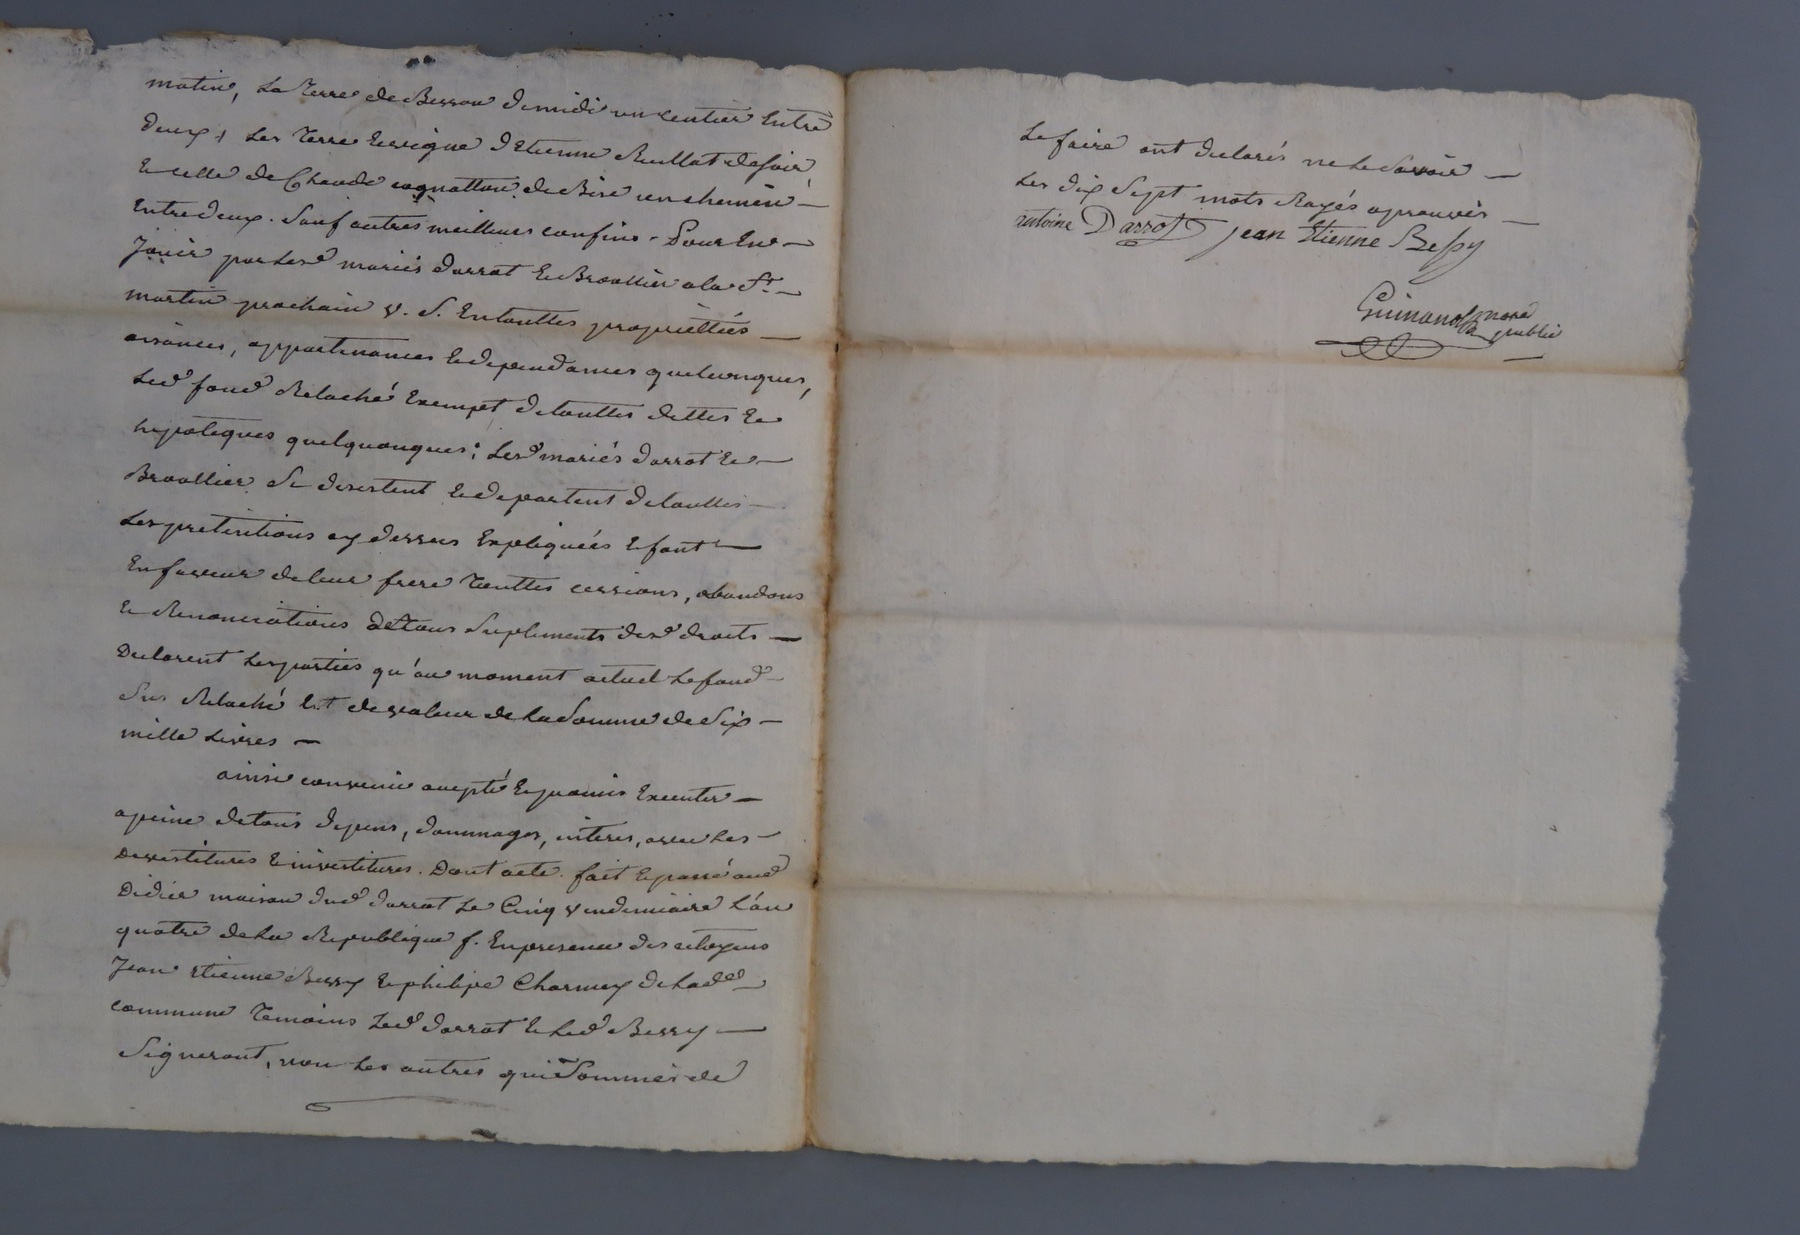 matin, La Terre de Besson de midi un sentier Entre
deux, Les Terre Et vigne d'Etienne Rullat de soir
Et celle de Claude cognatton de Bise un chemin —
Entre deux. Sauf autres meilleurs confins. Pour En —
Jouir par Lesd mariés darrot Et Broallier a la St. —
martin prochain v. s. En touttes propriettés —
aisances, appartenances Et dependances quelconques,
Led fond Relaché Exempt de touttes dettes Et
hypoteques quelquonques; Lesd mariés darrot Et —
Broallier Se desistent Et departent de touttes —
Les pretentions cy dessus Expliquées Et font —
En faveur de leur frere Touttes cessions, abandons
Et Renonciations de tous Suplements desd droits —
Declarent Les parties qu'au moment actuel Le fond —
Sus Relaché Est de valeur de La Somme de Six —
mille Livres —
ainsi convenu accepté Et promis Executer —
a peine de tous depens, dommages, interes, avec Les —
Devestitures Et investitures. Dont acte. fait Et passé aud
Didier maison dud darrot Le Cinq vendemiaire L'an
quatre de La Republique f. En presence des citoyens
Jean Etienne Bessy Et philipe Charmey de Lad. —
commune Temoins Led darrot Et Led Bessy —
Signeront, non Les autres qui Sommés de
Le faire ont declarés ne Le Savoir —
Les dix Sept mots Rayés aprouvés —
antoine Darrot Jean Etienne Bessy
Guimand nore
public